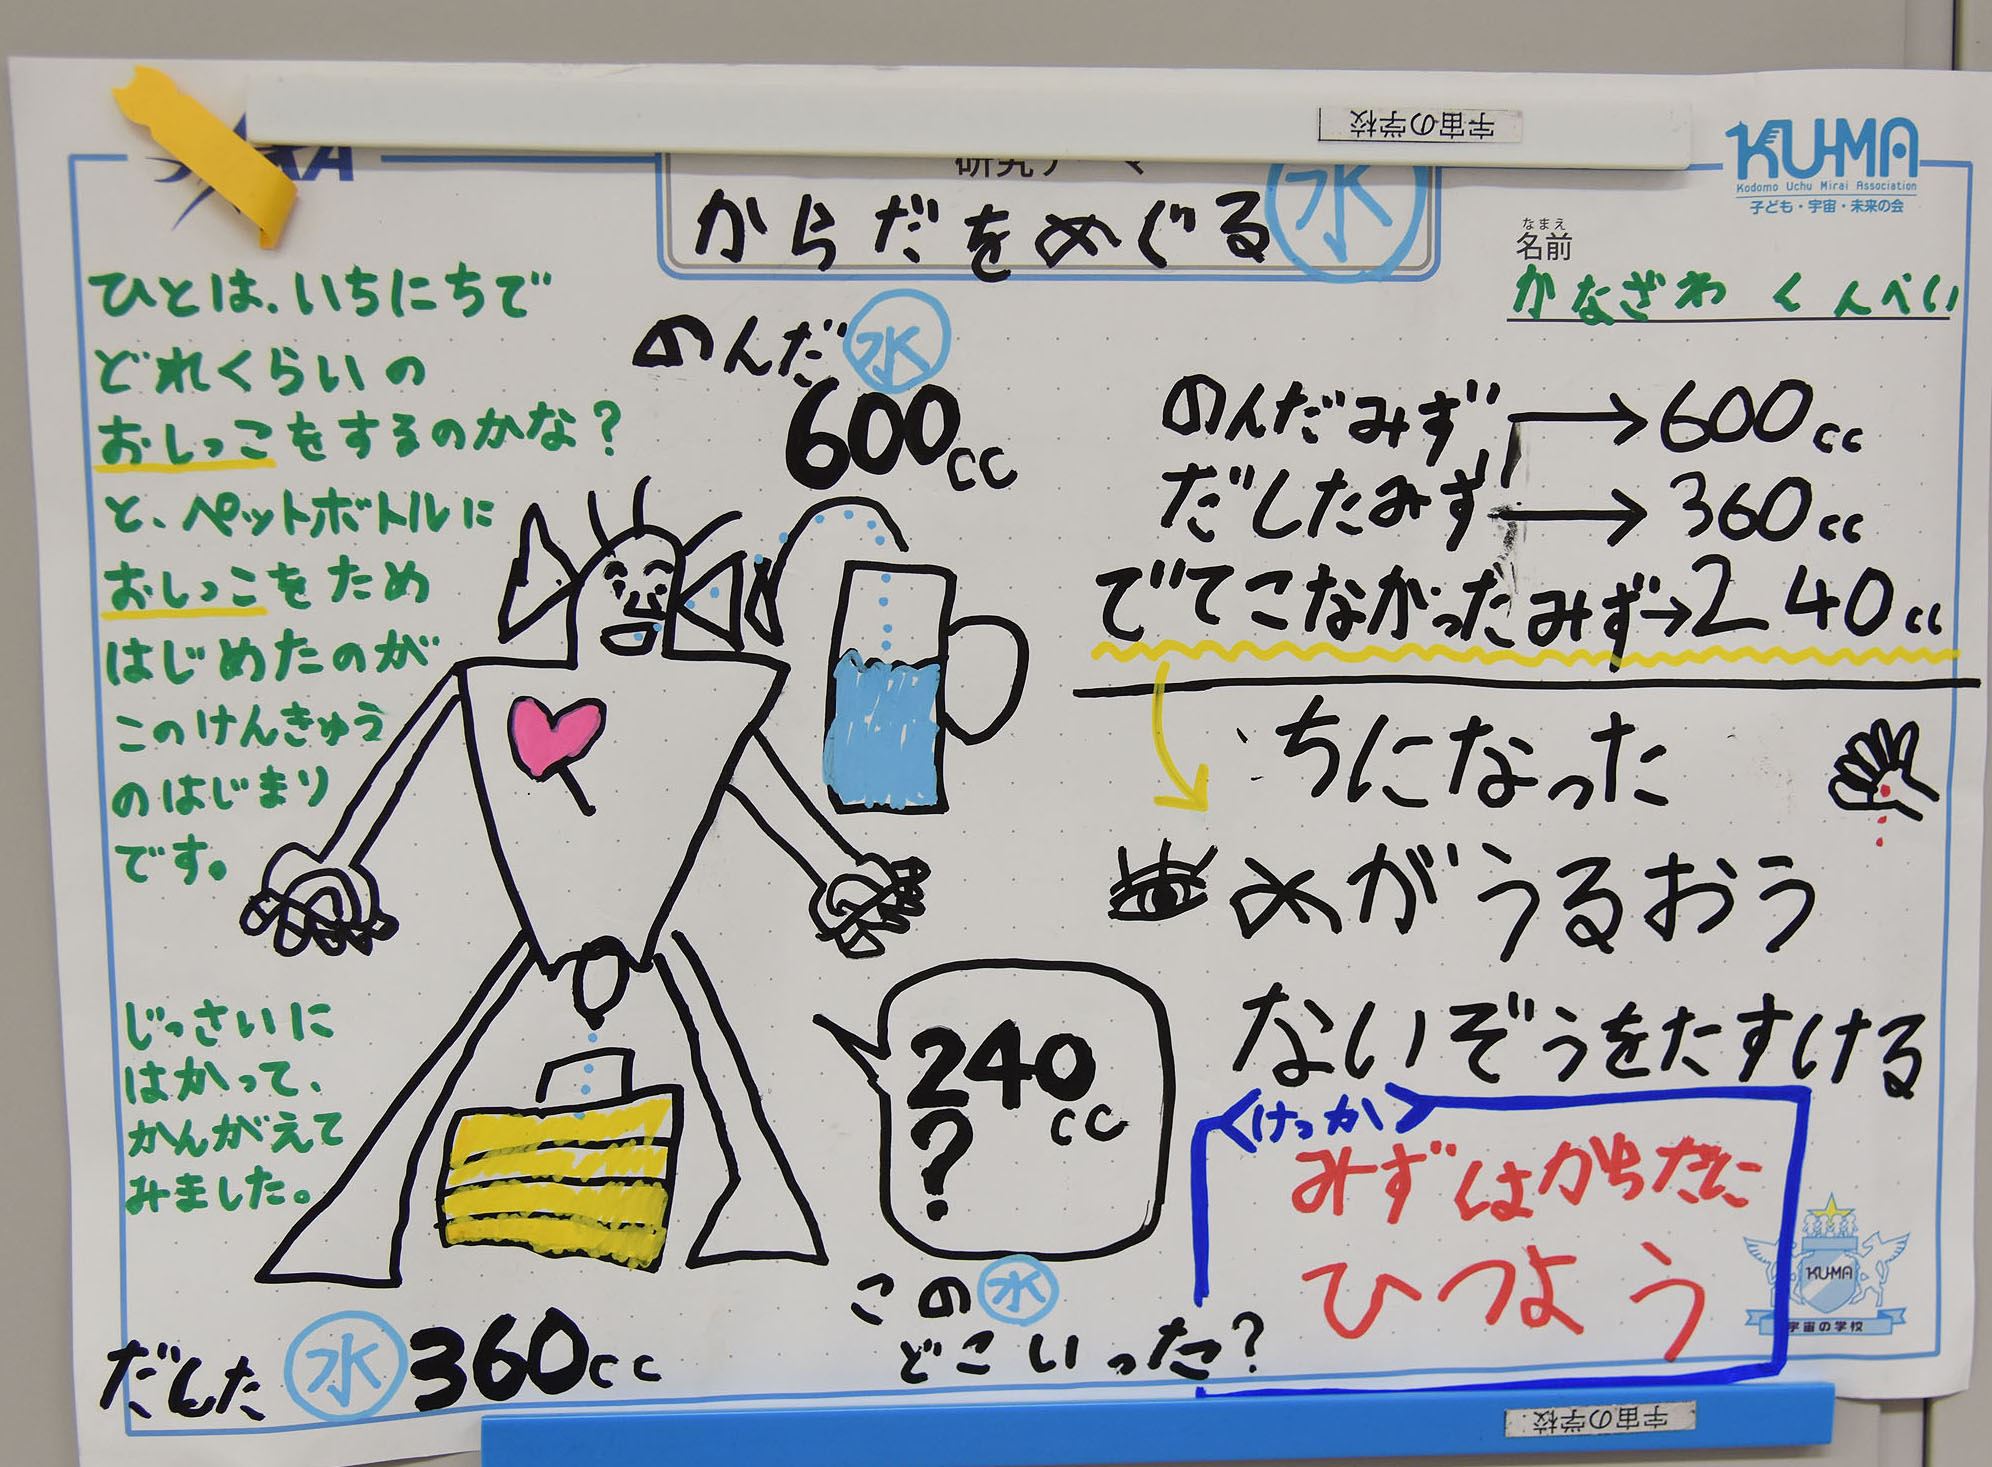 宇宙の学校
KU-MA
Kodomo Uchu Mirai Association
子ども・宇宙・未来の会
研究テーマ
からだをめぐる水
なまえ
名前
かなざわ くんぺい
ひとは、いちにちで
どれくらいの
おしっこをするのかな?
と、ペットボトルに
おしっこをため
はじめたのが
このけんきゅう
のはじまり
です。
じっさいに
はかって、
かんがえて
みました。
のんだ水
600cc
だした水360cc
240
cc
?
この水
どこいった?
のんだみず→600cc
だしたみず→360cc
でてこなかったみず→240cc
ちになった
めがうるおう
ないぞうをたすける
けっか
みずはからだに
ひつよう
KU-MA
宇宙の学校
宇宙の学校